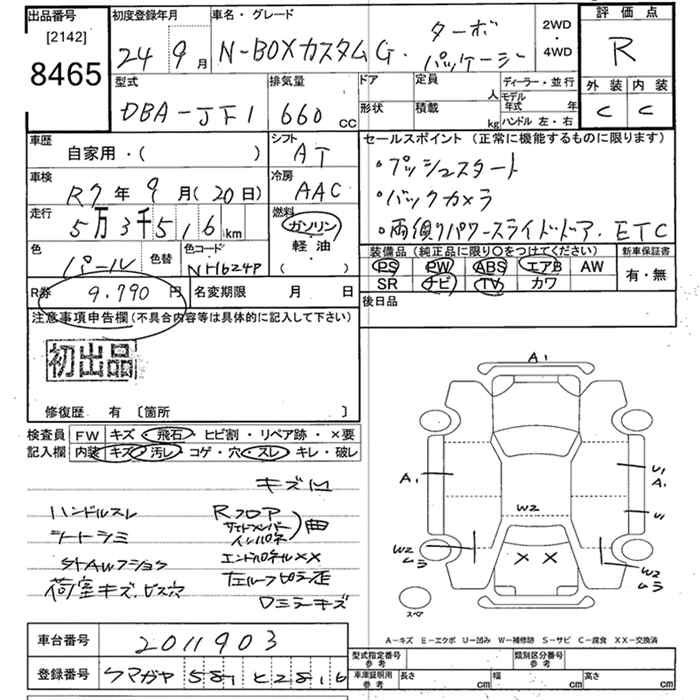 出品番号
[2142]
8465
初度登録年月
24 9月
車名・グレード
N-BOXカスタムG・ターボパッケージ
2WD
・
4WD
評価点
R
外装 内装
C C
型式
DBA-JF1
排気量
660cc
ドア
定員 人
形状
積載 kg
ディーラー・並行
モデル年式 年
ハンドル 左・右
車歴
自家用・( )
シフト
AT
車検
R7年9月(20日)
冷房
AAC
走行
5万3千516km
燃料
ガソリン
軽油
・( )
色
パール
色替
色コード
NH624P
R券 9,790円
名変期限 月 日
セールスポイント (正常に機能するものに限ります)
・プッシュスタート
・バックカメラ
・両側パワースライドドア. ETC
装備品 (純正品に限り○をつけてください)
PS PW ABS エアB AW
SR ナビ TV カワ
新車保証書
有・無
後日品
注意事項申告欄 (不具合内容等は具体的に記入して下さい)
初出品
修復歴 有 〔箇所 〕
検査員
記入欄
FW キズ・飛石・ヒビ割・リペア跡・×要
内装 キズ・汚レ・コゲ・穴・スレ・キレ・破レ
キズ凹
ハンドルスレ
シートシミ
荷室キズ、ビス穴
Rフロア
サイドメンバー
インパネ
曲
エンドパネルXX
左ルーフピラー歪
A1
A1
U1
A1
U1
W2
W2
ムラ
W2
ムラ
X X
スペア
A-キズ E-エクボ U-凹み W-補修跡 S-サビ C-腐食 XX-交換済
車台番号
2011903
登録番号
クマガヤ 581 ヒ 2816
型式指定番号
参考
類別区分番号
参考
車庫証明用
参考
長さ cm
幅 cm
高さ cm